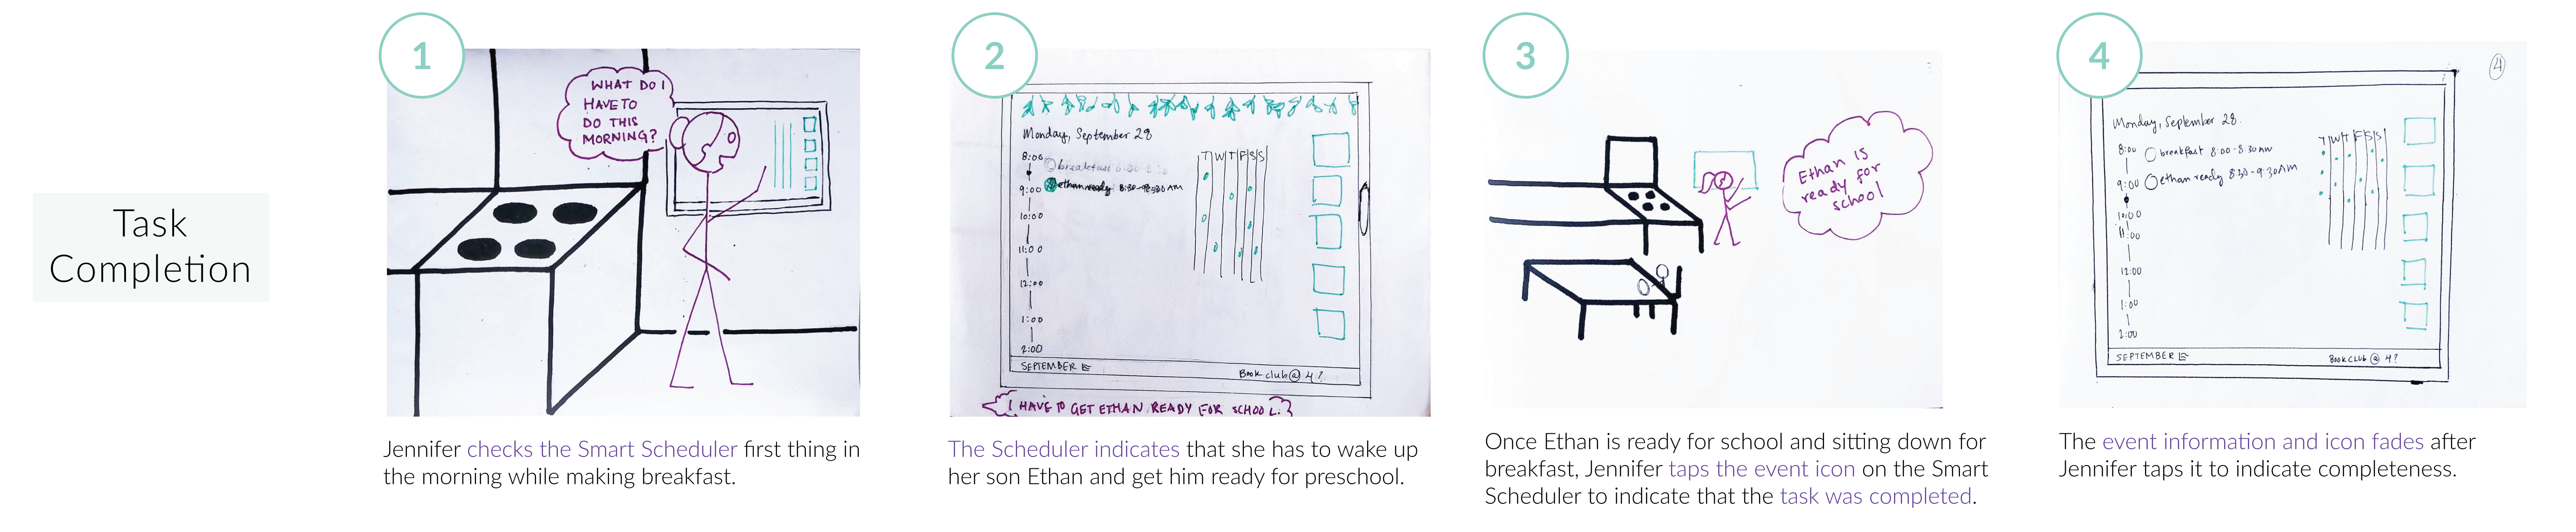 Task
Completion
1
WHAT DO I
HAVE TO
DO THIS
MORNING?
Jennifer checks the Smart Scheduler first thing in
the morning while making breakfast.
2
Monday, September 28
8:00
breakfast
9:00
ethan ready 8:30-9:30 AM
10:00
11:00
12:00
1:00
2:00
T W T F S S
SEPTEMBER
Book club @ 4?
I HAVE TO GET ETHAN READY FOR SCHOOL.
The Scheduler indicates that she has to wake up
her son Ethan and get him ready for preschool.
3
Ethan is
ready for
school
Once Ethan is ready for school and sitting down for
breakfast, Jennifer taps the event icon on the Smart
Scheduler to indicate that the task was completed.
4
4
Monday, September 28.
8:00 breakfast 8:00-8:30 AM
9:00 ethan ready 8:30-9:30AM
10:00
11:00
12:00
1:00
2:00
T W T F S S
SEPTEMBER
BOOK CLUB @ 4?
The event information and icon fades after
Jennifer taps it to indicate completeness.